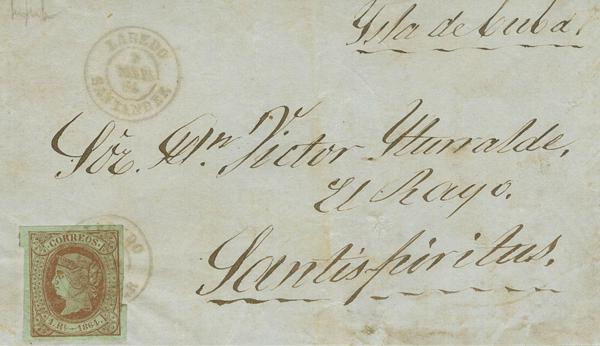 Ysla de Cuba.
LAREDO
SANTANDER
Sór. Dn Victor Yturralde.
El Rayo.
Santispiritus.
CORREOS.
1 Rl 1864.